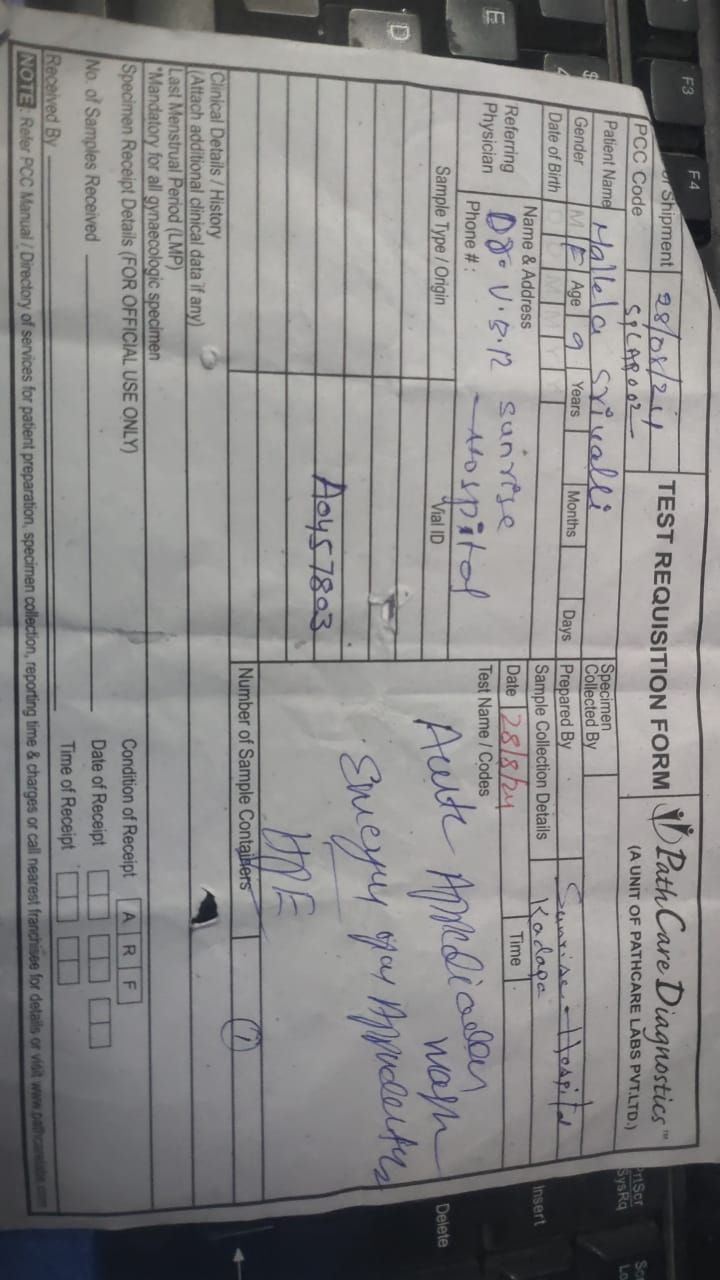 of Shipment 28/08/24
TEST REQUISITION FORM
PathCare Diagnostics™
(A UNIT OF PATHCARE LABS PVT.LTD.)
PCC Code
Patient Name Mallela Srivalli
Gender M F Age 9 Years Months Days
Date of Birth D D M M Y Y
Specimen Collected By
Prepared By Sunrise Hospital
Sample Collection Details Kadapa
Date 28/8/24 Time
Referring Physician
Name & Address
Dr. V.B.R Sunrise
Hospital
Phone #:
Test Name / Codes
Sample Type / Origin
Vial ID
Acute Appendicular mass
Emergency open Appendectomy
A0457803
HPE
Number of Sample Containers 1
Clinical Details / History
(Attach additional clinical data if any)
Last Menstrual Period (LMP)
*Mandatory for all gynaecologic specimen
Specimen Receipt Details (FOR OFFICIAL USE ONLY)
Condition of Receipt A R F
No. of Samples Received
Date of Receipt
Received By
Time of Receipt
NOTE: Refer PCC Manual / Directory of services for patient preparation, specimen collection, reporting time & charges or call nearest franchisee for details or visit
F3
F4
E
D
$
PrtScr
SysRq
Insert
Delete